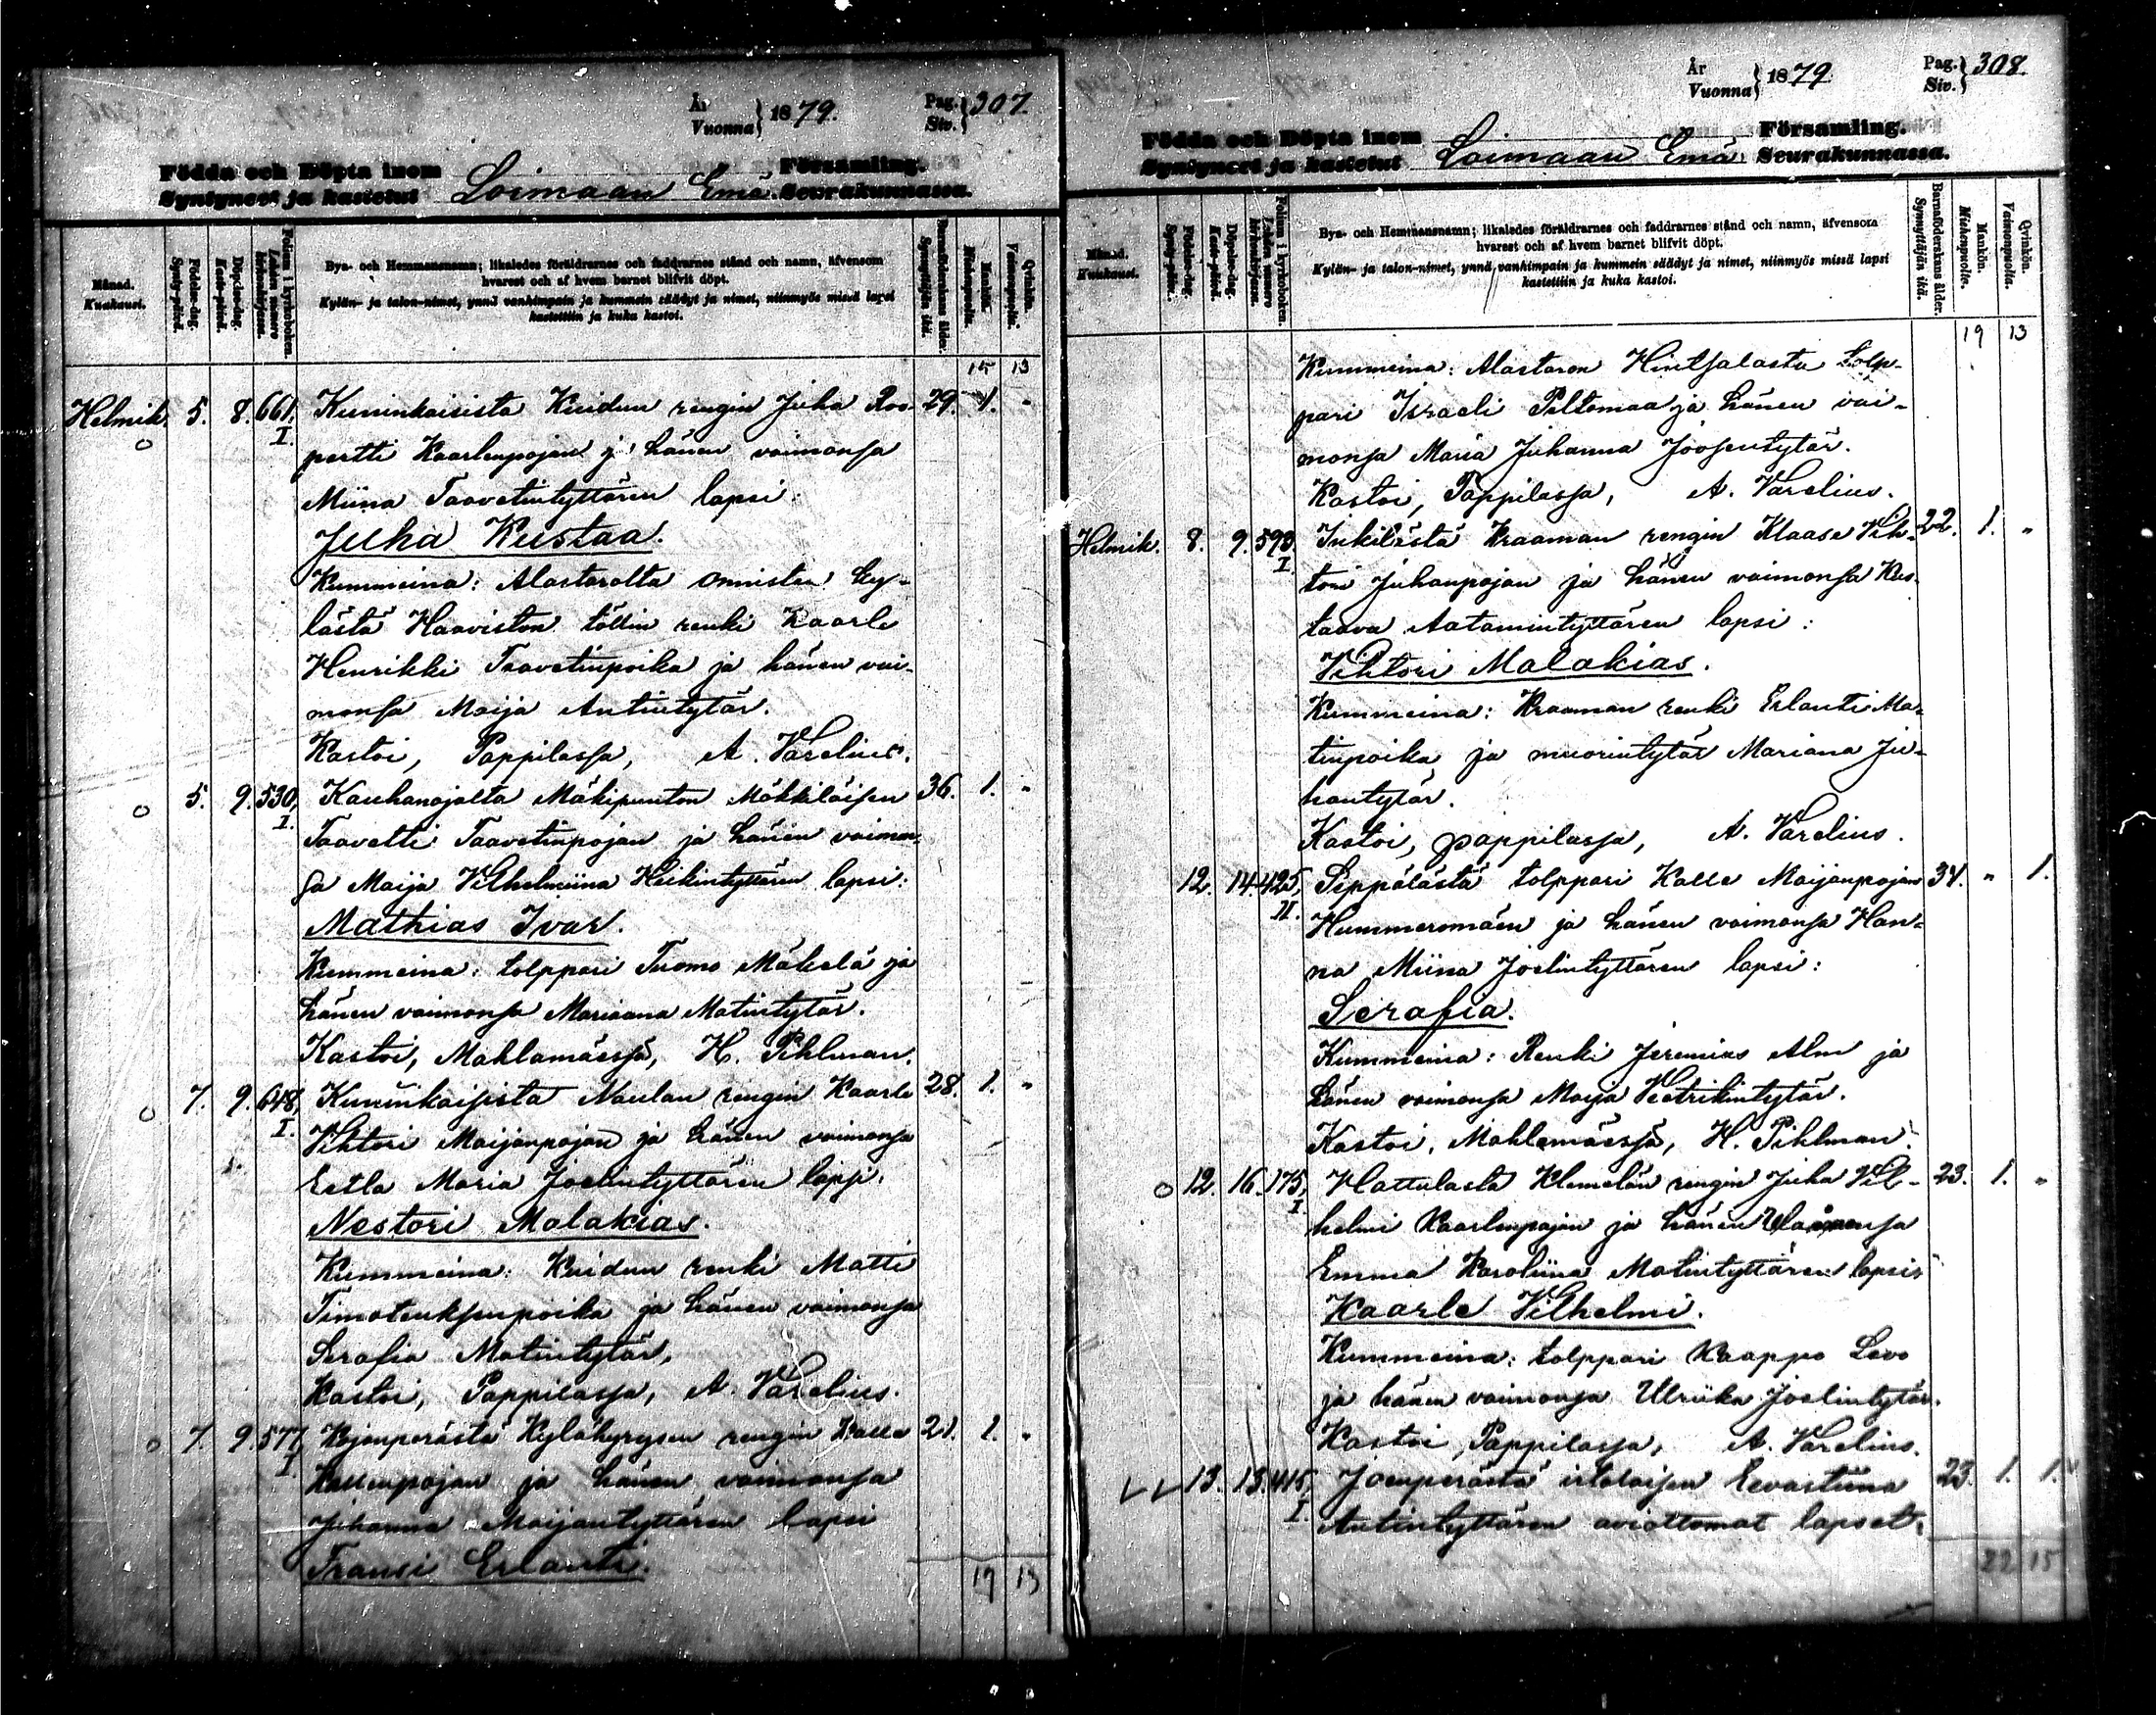 År
Vuonna } 1879. Pag.
Siv. } 307.
Födda och Döpta inom Församling.
Syntyneet ja kastetut Loimaan Emä Seurakunnassa.
Månad.
Kuukausi.
Födelse-dag.
Synty-päivä.
Döpelse-dag.
Kaste-päivä.
Folium i kyrkoboken.
Lehden numero kirkonkirjassa.
Bya- och Hemmansnamn; likaledes föräldrarnes och faddrarnes stånd och namn, äfvensom
hvarest och af hvem barnet blifvit döpt.
Kylän- ja talon-nimet, ynnä vanhimpain ja kummein säädyt ja nimet, niinmyös missä lapsi
kastettiin ja kuka kastoi.
Barnaföderskans ålder.
Synnyttäjän ikä.
Mankön.
Miehenpuolta.
Qvinkön.
Vaimonpuolta.
15 13
Helmik. 5. 8. 661. I. Kuninkaisista Kuidun rengin Juha Roo- 29. 1. "
pertti Kaarlenpojan j. hänen vaimonsa
Miina Taavetintyttären lapsi:
Juha Kustaa.
Kummeina: Alastarolta Onnistan ky-
lästä Haaviston töllin renki Kaarle
Henrikki Taavetinpoika ja hänen vai-
monsa Maija Antintytär.
Kastoi, Pappilassa, A. Varelius.
5. 9. 530, I. Kauhanojalta Mäkipunton Mökkiläisen 36. 1. "
Taavetti Taavetinpojan ja hänen vaimon-
sa Maija Vilhelmiina Heikintyttären lapsi:
Mathias Ivar.
Kummeina: tolppari Tuomo Mäkelä ja
hänen vaimonsa Mariaana Matintytär.
Kastoi, Mahlamäessä, H. Pihlman.
7. 9. 648, I. Kuninkaisista Naulan rengin Kaarle 28. 1. "
Vihtori Maijanpojan ja hänen vaimonsa
Eetla Maria Joelintyttären lapsi.
Nestori Malakias.
Kummeina: Kuidun renki Matti
Timoteuksenpoika ja hänen vaimonsa
Serafia Matintytär,
Kastoi, Pappilassa, A. Varelius.
7. 9. 577, I. Kojonperästä Kylähyrysen rengin Kalle 21. 1. "
Kallenpojan ja hänen vaimonsa
Johanna Maijantyttären lapsi
Fransi Erlanti.
19 13
År
Vuonna } 1879. Pag.
Siv. } 308.
Födda och Döpta inom Församling.
Syntyneet ja kastetut Loimaan Emä Seurakunnassa.
Månad.
Kuukausi.
Födelse-dag.
Synty-päivä.
Döpelse-dag.
Kaste-päivä.
Folium i kyrkoboken.
Lehden numero kirkonkirjassa.
Bya- och Hemmansnamn; likaledes föräldrarnes och faddrarnes stånd och namn, äfvensom
hvarest och af hvem barnet blifvit döpt.
Kylän- ja talon-nimet, ynnä vanhimpain ja kummein säädyt ja nimet, niinmyös missä lapsi
kastettiin ja kuka kastoi.
Barnaföderskans ålder.
Synnyttäjän ikä.
Mankön.
Miehenpuolta.
Qvinkön.
Vaimonpuolta.
19 13
Kummeina: Alastaron Hintsalasta tolp-
pari Israeli Peltomaa ja hänen vai-
monsa Maria Juhanna Joosentytär.
Kastoi, Pappilassa, A. Varelius.
Helmik. 8. 9. 593. I. Inkilästä Kraaman rengin Klaase Vih- 22. 1. "
tori Juhanpojan ja hänen vaimonsa Kus-
taava Aatamintyttären lapsi:
Vihtori Malakias.
Kummeina: Kraaman renki Erlanti Ma-
tinpoika ja muorintytär Mariana Ju-
hantytär.
Kastoi, pappilassa, A. Varelius.
12. 14. 425, II. Seppälästä tolppari Kalle Maijanpojan 34. " 1.
Hummeromäen ja hänen vaimonsa Han-
na Miina Joelintyttären lapsi:
Serafia.
Kummeina: Renki Jeremias Alm ja
hänen vaimonsa Maija Veetrikintytär.
Kastoi, Mahlamäessä, H. Pihlman.
12. 16. 175, I. Hattulasta Klemelän rengin Juha Vil- 23. 1. "
helmi Kaarlenpojan ja hänen vaimonsa
Emma Karoliina Matintyttären lapsi:
Kaarle Vilhelmi.
Kummeina: tolppari Kaappo Levo
ja hänen vaimonsa Ulriika Joelintytär.
Kastoi, Pappilassa, A. Varelius.
13. 13. 415, I. Joenperästä itellisen Eevastiina 23. 1. 1.
Antintyttären aviottomat lapset:
22 15